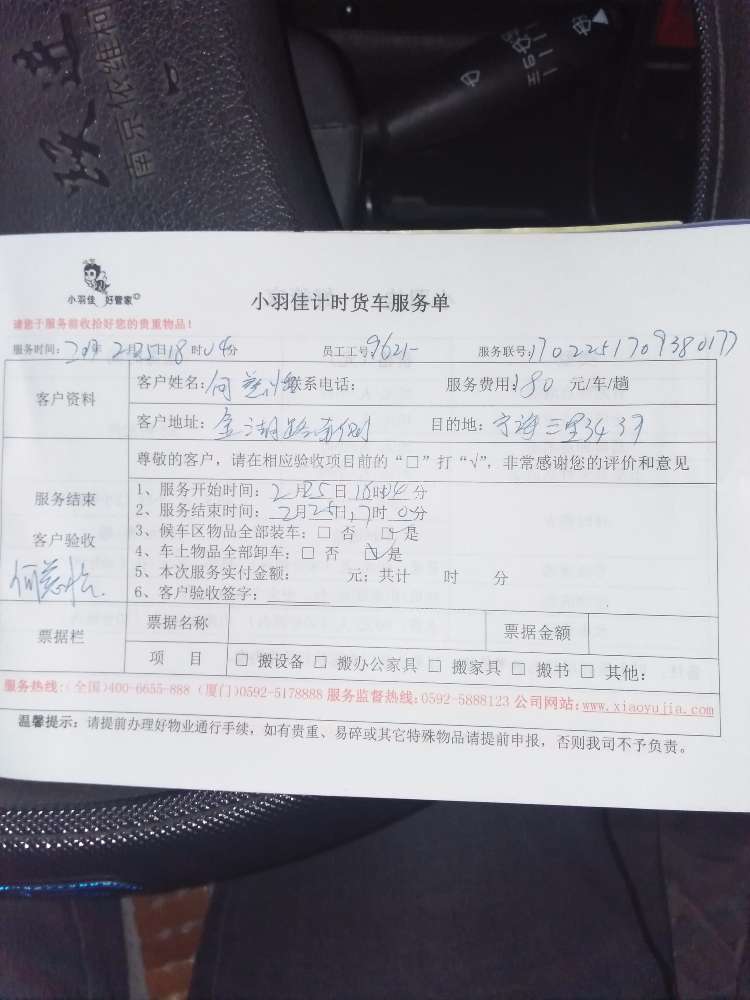 跃进
南京依维柯
小羽佳 好管家
小羽佳计时货车服务单
请您于服务前收拾好您的贵重物品！
服务时间： 年2月25日18时04分 员工工号：9621 服务联号：1702251709380177
客户资料
客户姓名：何 联系电话： 服务费用：180 元/车/趟
客户地址：金湖路 侧 目的地： 三里34 39
尊敬的客户，请在相应验收项目前的“□”打“√”，非常感谢您的评价和意见
服务结束
客户验收
何
1、服务开始时间：2月25日16时14分
2、服务结束时间：2月25日17时0分
3、候车区物品全部装车：□ 否 ☑ 是
4、车上物品全部卸车：□ 否 ☑ 是
5、本次服务实付金额： 元；共计 时 分
6、客户验收签字：
票据栏
票据名称 票据金额
项 目 □ 搬设备 □ 搬办公家具 □ 搬家具 □ 搬书 □ 其他：
服务热线：(全国)400-6655-888 (厦门)0592-5178888 服务监督热线：0592-5888123 公司网站：www.xiaoyujia.com
温馨提示：请提前办理好物业通行手续，如有贵重、易碎或其它特殊物品请提前申报，否则我司不予负责。